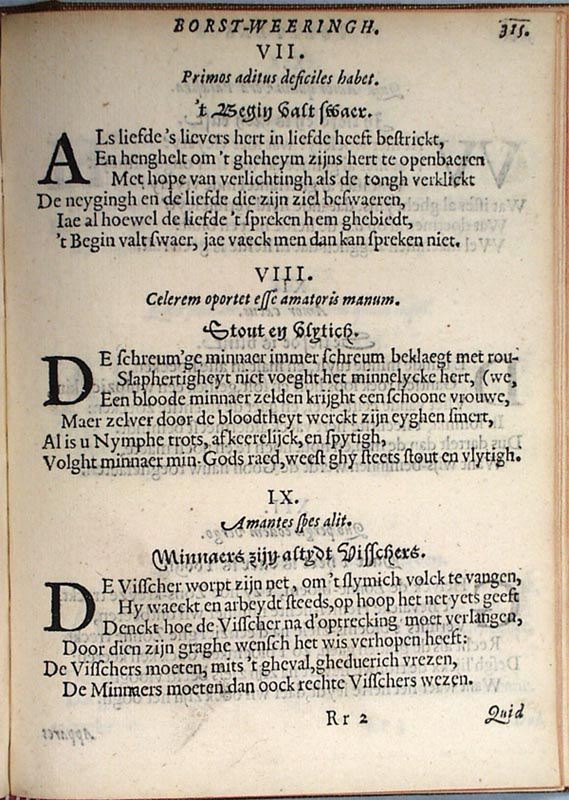 BORST-WEERINGH. 315.
VII.
Primos aditus deficiles habet.
't Begin valt swaer.
ALs liefde 's lievers hert in liefde heeft bestrickt,
En henghelt om 't gheheym zijns hert te openbaeren
Met hope van verlichtingh, als de tongh verklickt
De neygingh en de liefde die zijn ziel beswaeren,
Iae al hoewel de liefde 't spreken hem ghebiedt,
't Begin valt swaer, jae vaeck men dan kan spreken niet.
VIII.
Celerem oportet esse amatoris manum.
Stout en Vlytich.
DE schreum'ge minnaer immer schreum beklaegt met rou-
Slaphertigheyt niet voeght het minnelycke hert, (we,
Een bloode minnaer zelden krijght een schoone vrouwe,
Maer zelver door de bloodtheyt werckt zijn eyghen smert,
Al is u Nymphe trots, afkeerelijck, en spytigh,
Volght minnaer min-Gods raed, weest ghy steets stout en vlytigh.
IX.
Amantes spes alit.
Minnaers zijn altydt Visschers.
DE Visscher worpt zijn net, om 't slymich volck te vangen,
Hy waeckt en arbeydt steeds, op hoop het net yets geeft
Denckt hoe de Visscher na d'optrecking moet verlangen,
Door dien zijn graghe wensch het wis verhopen heeft:
De Visschers moeten, mits 't gheval, gheduerich vrezen,
De Minnaers moeten dan oock rechte Visschers wezen.
Rr 2 Quid